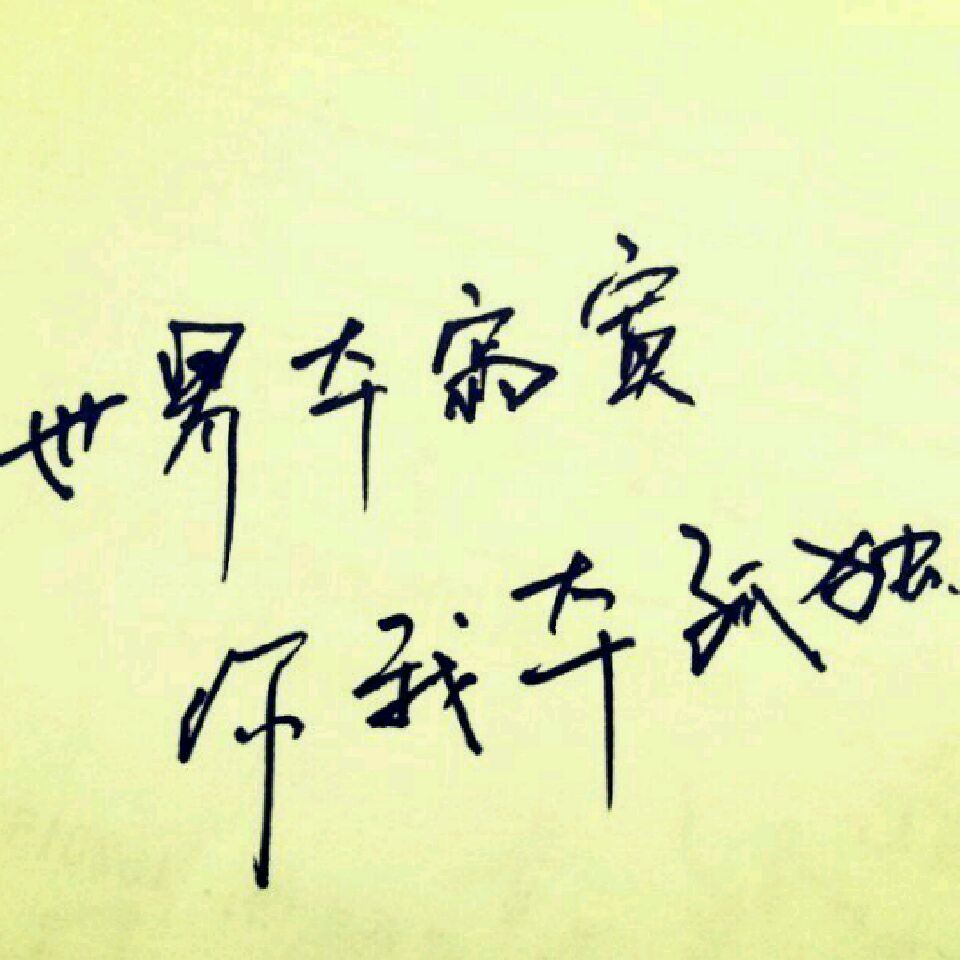 世界本寂寞
你我本孤独